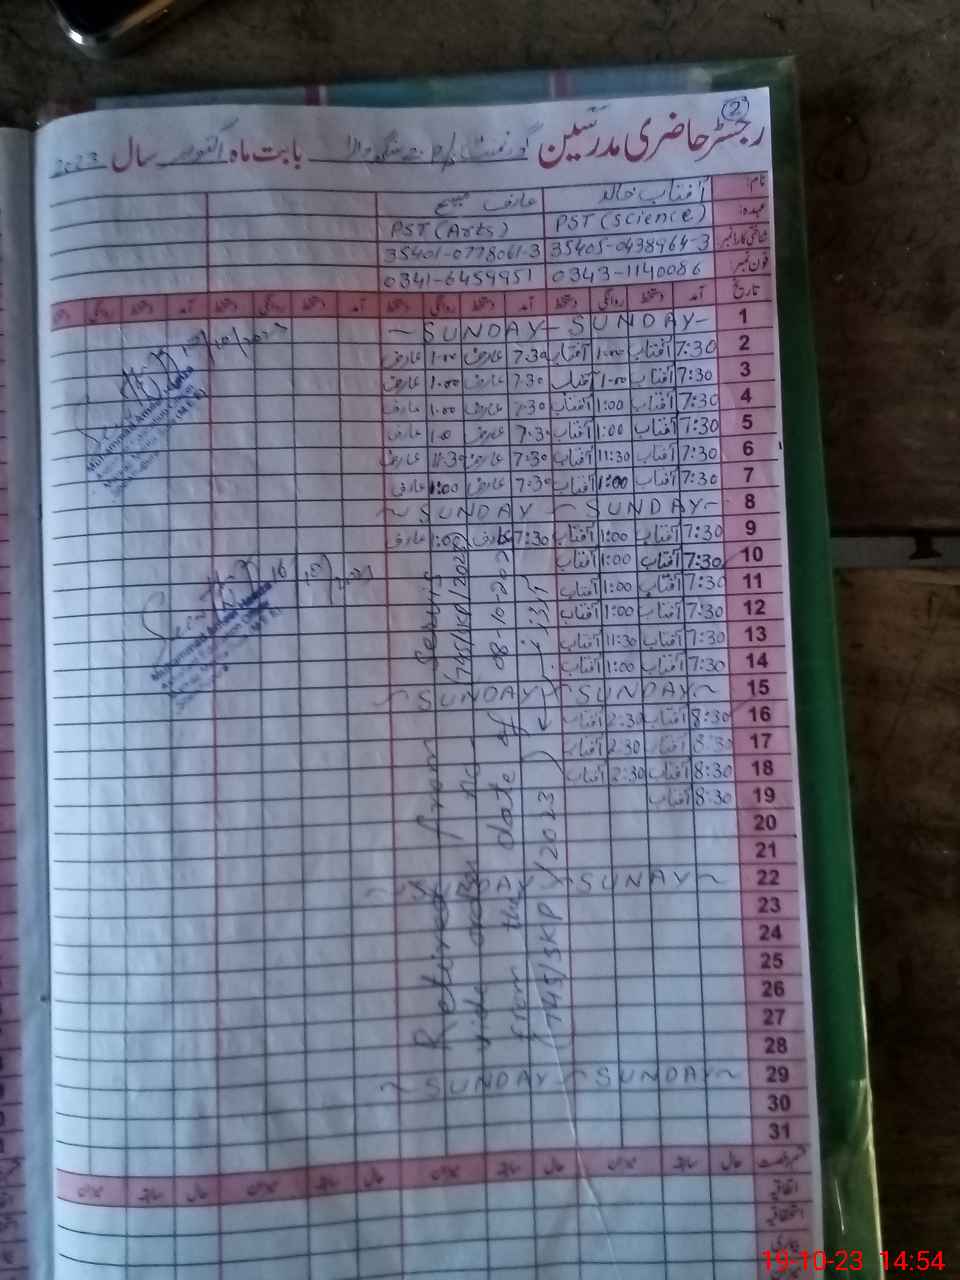 2
رجسٹر حاضری مدرسین گورنمنٹ بابت ماہ اکتوبر سال 2023
نام: آفتاب خالد عارف مسیح
عہدہ: PST (Science) PST (Arts)
شناختی کارڈ نمبر 35405-0438964-3 35401-0778061-3
فون نمبر: 0343-1140086 0341-6459951
تاریخ آمد دستخط روانگی دستخط آمد دستخط روانگی دستخط آمد دستخط روانگی دستخط آمد دستخط روانگی دستخط
1 ~ SUNDAY ~ SUNDAY ~
2 7:30 آفتاب 1:00 آفتاب 7:30 عارف 1:00 عارف
3 7:30 آفتاب 1:00 آفتاب 7:30 عارف 1:00 عارف
4 7:30 آفتاب 1:00 آفتاب 7:30 عارف 1:00 عارف
5 7:30 آفتاب 1:00 آفتاب 7:30 عارف 1:0 عارف
6 7:30 آفتاب 11:30 آفتاب 7:30 عارف 11:30 عارف
7 7:30 آفتاب 1:00 آفتاب 7:30 عارف 1:00 عارف
8 ~ SUNDAY ~ SUNDAY ~
9 7:30 آفتاب 1:00 آفتاب 7:30 عارف 1:00 عارف
10 7:30 آفتاب 1:00 آفتاب
11 7:30 آفتاب 1:00 آفتاب
12 7:30 آفتاب 1:00 آفتاب
13 7:30 آفتاب 11:30 آفتاب
14 7:30 آفتاب 1:00 آفتاب
15 ~ SUNDAY ~ SUNDAY ~
16 8:30 آفتاب 2:30 آفتاب
17 8:30 آفتاب 2:30 آفتاب
18 8:30 آفتاب 2:30 آفتاب
19 8:30 آفتاب
20
21
22 ~ SUNDAY ~ SUNAY ~
23
24
25
26
27
28
29 ~ SUNDAY ~ SUNDAY ~
30
31
Retired from Servis
vide order No 1745/SKP/2023
from the date of 08-10-202
(1745/SKP/2023)
16/10/2023
حال سابقہ میزان حال سابقہ میزان حال سابقہ میزان حال سابقہ میزان
اتفاقیہ
استحقاقیہ
بیماری
19-10-23 14:54